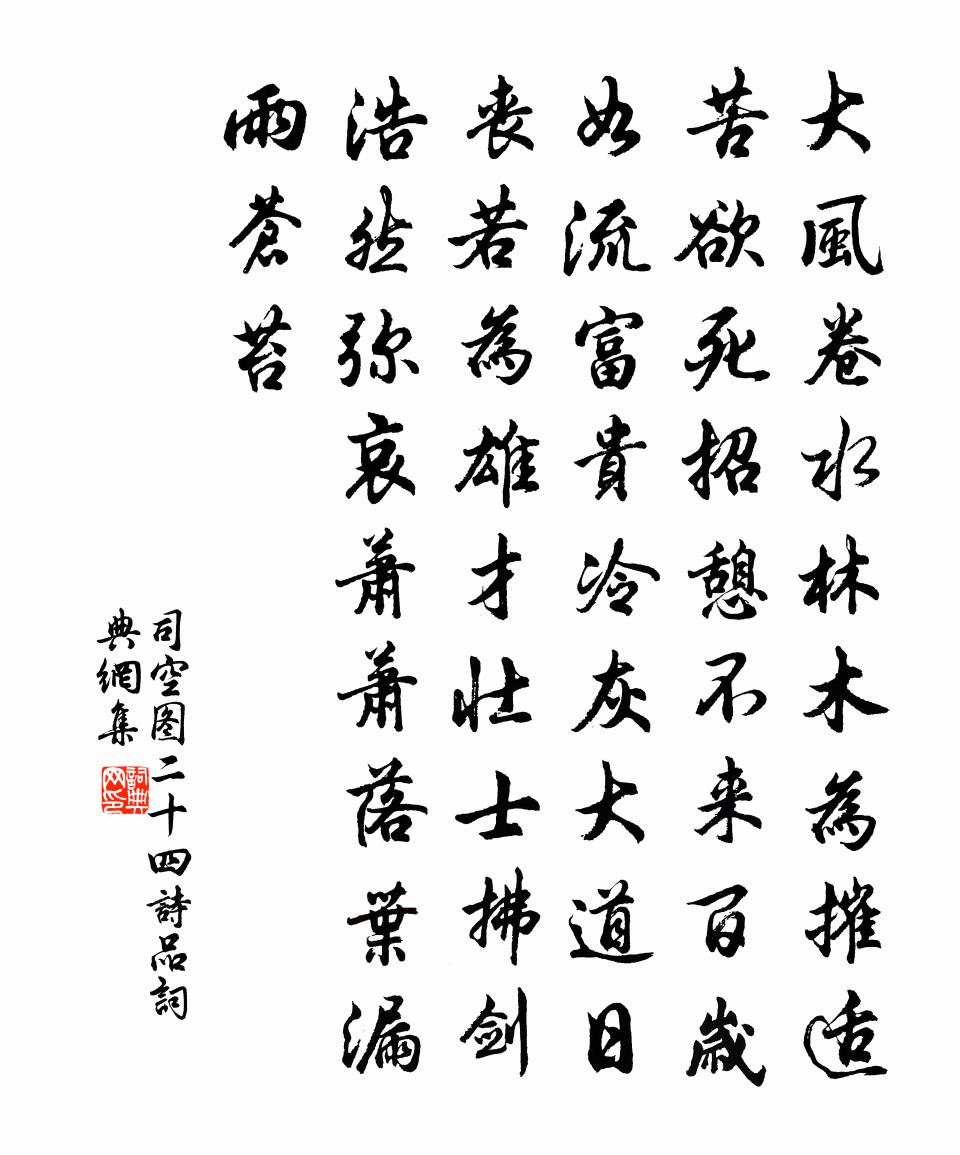 大風卷水林木為摧适
苦欲死招憩不来百歲
如流富貴冷灰大道日
喪若為雄才壮士拂剑
浩然弥哀蕭蕭落葉漏
雨蒼苔
司空图二十四詩品詞
典網集
詞典
网印